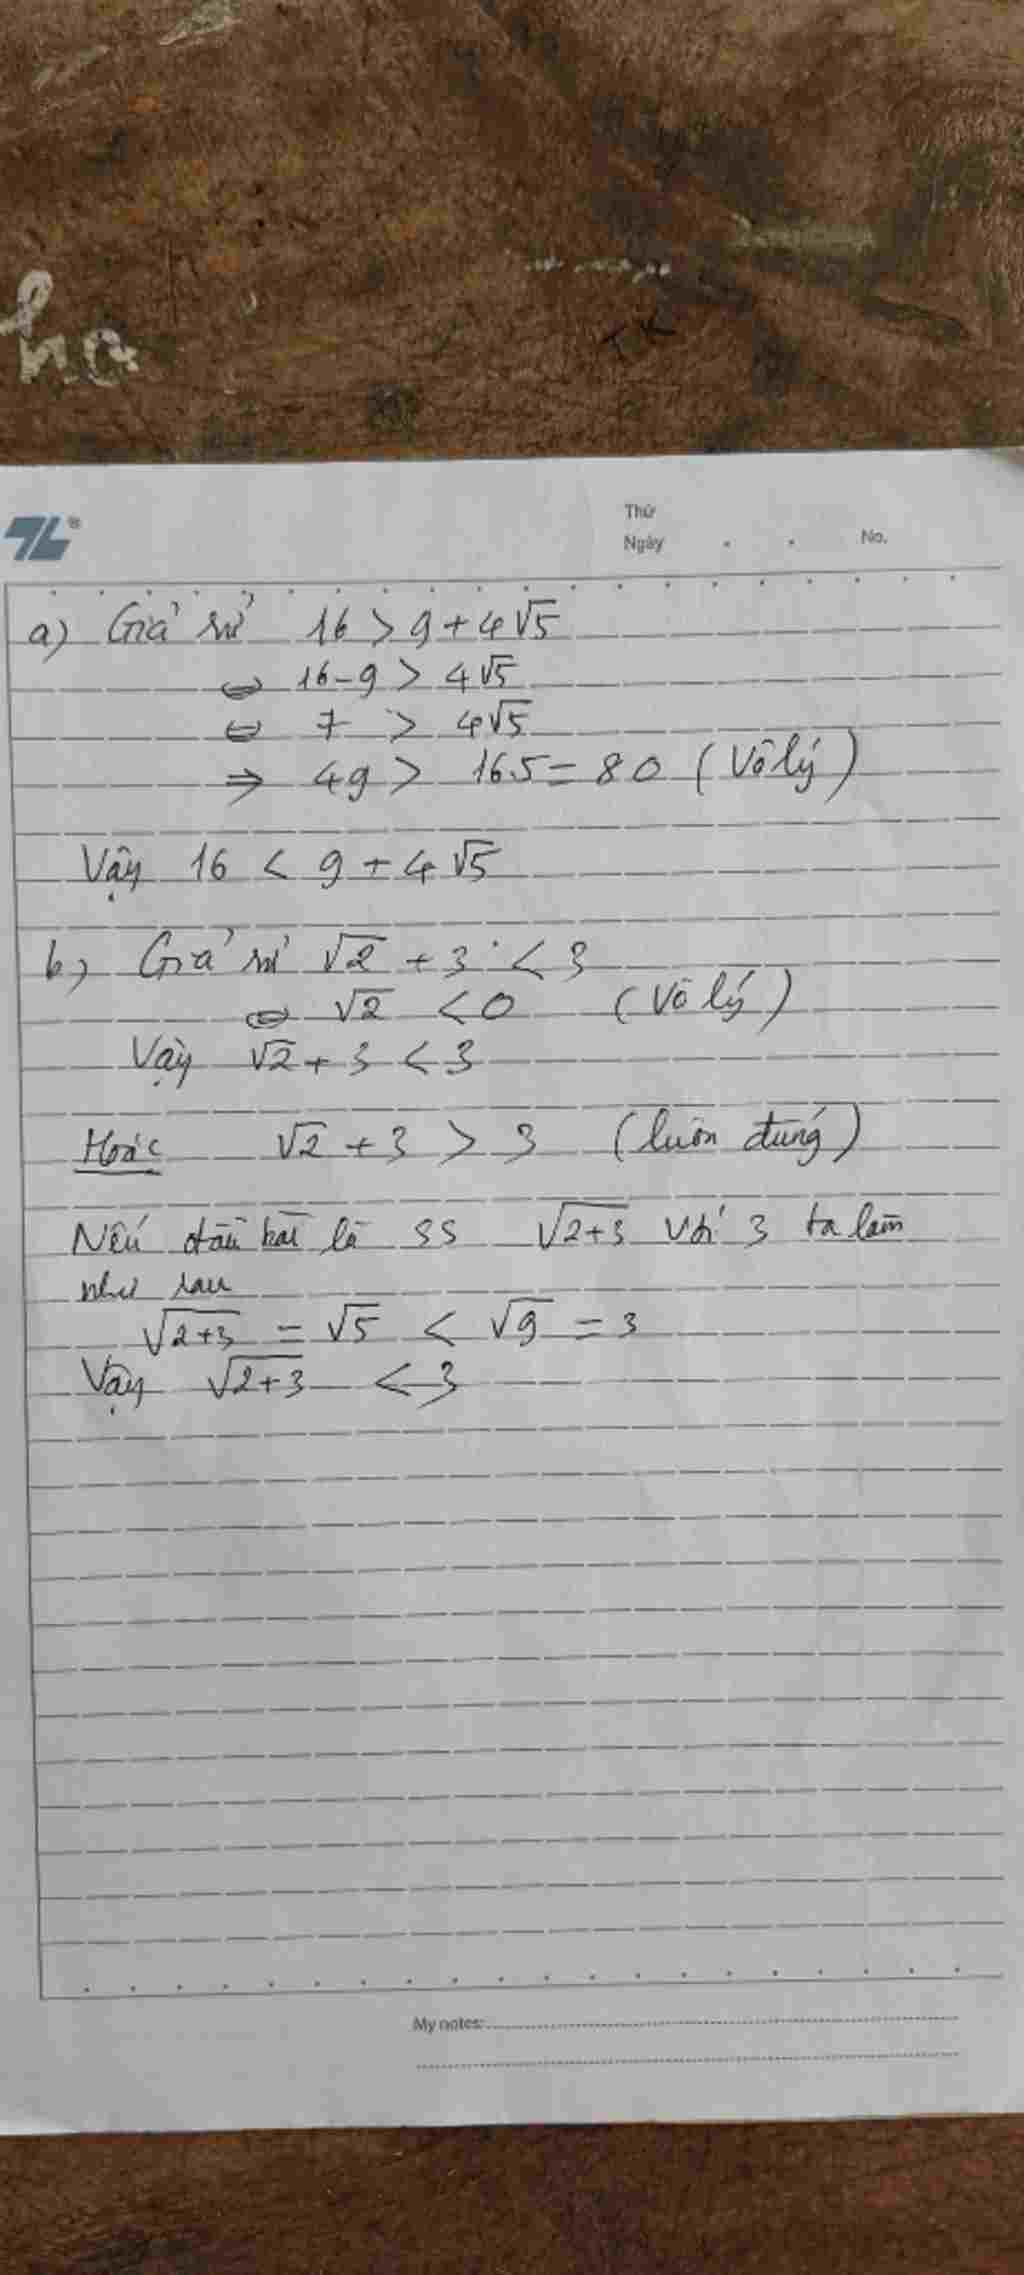 ha
TK
Thứ
Ngày . . No.
a) Giả sử 16 > 9 + 4√5
⇔ 16 - 9 > 4√5
⇔ 7 > 4√5
⇒ 49 > 16.5 = 80 (Vô lý)
Vậy 16 < 9 + 4√5
b) Giả sử √2 + 3 < 3
⇔ √2 < 0 (Vô lý)
Vậy √2 + 3 < 3
Hoặc √2 + 3 > 3 (luôn đúng)
Nếu đầu bài là SS √(2+3) với 3 ta làm
như sau
√(2+3) = √5 < √9 = 3
Vậy √(2+3) < 3
My notes: